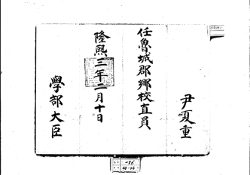 尹夏重
任魯城郡鄕校直員
隆熙三年二月十日
學部大臣